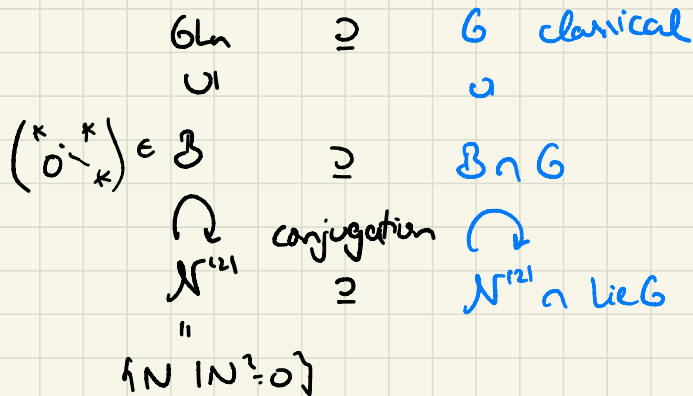 GLn ⊇ G classical
∪ı ∪ı
(* * 0 ⋱ *) ∈ B ⊇ B ∩ G
conjugation
N⁽²⁾ ⊇ N⁽²⁾ ∩ Lie G
"
{N | N² = 0}